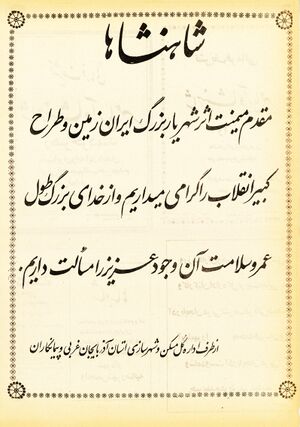 شاهنشاها
مقدم میمنت اثر شهریار بزرگ ایران زمین و طراح
کبیر انقلاب را گرامی میداریم و از خدای بزرگ طول
عمر و سلامت آن وجود عزیز را مسألت داریم.
از طرف اداره کل مسکن و شهرسازی استان آذربایجان غربی و پیمانکاران